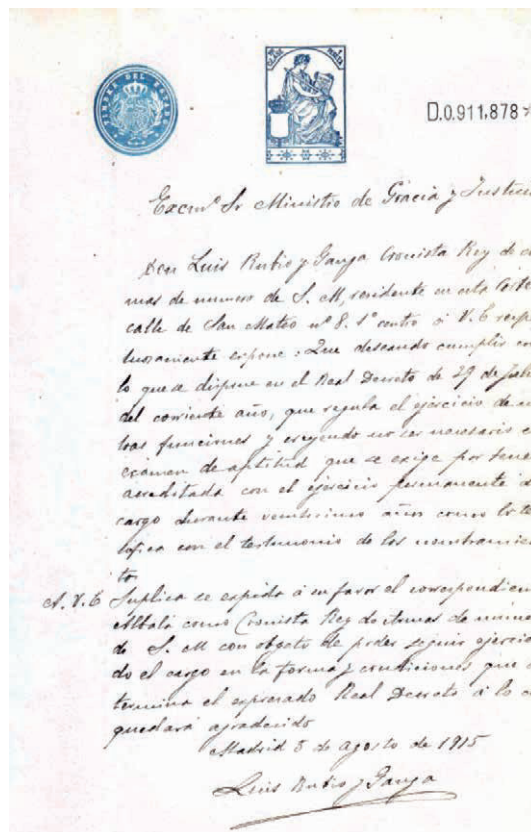 TIMBRE DEL ESTADO
D.0.911,878
Excmº Sr Ministro de Gracia y Justici
Don Luis Rubio y Ganga Cronista Rey de
mas de numero de S. M, residente en esta Corte
calle de San Mateo nº 8. 1º centro á V. E resp
tuosamente expone: Que deseando cumplir con
lo que se dispone en el Real Decreto de 29 de Juli
del corriente año, que regula el ejercicio de
tras funciones y creyendo no ser necesario e
exámen de aptitud que se exige por tene
acreditada con el ejercicio permanente d
cargo durante veinticinco años como lo
con el testimonio de los nombramie
tos
A. V. E Suplica se expida á su favor el correspondien
Albalá como Cronista Rey de Armas de núme
de S. M con objeto de poder seguir ejercie
do el cargo en la forma y condiciones que
termina el expresado Real Decreto á lo
quedará agradecido
Madrid 5 de Agosto de 1915
Luis Rubio y Ganga